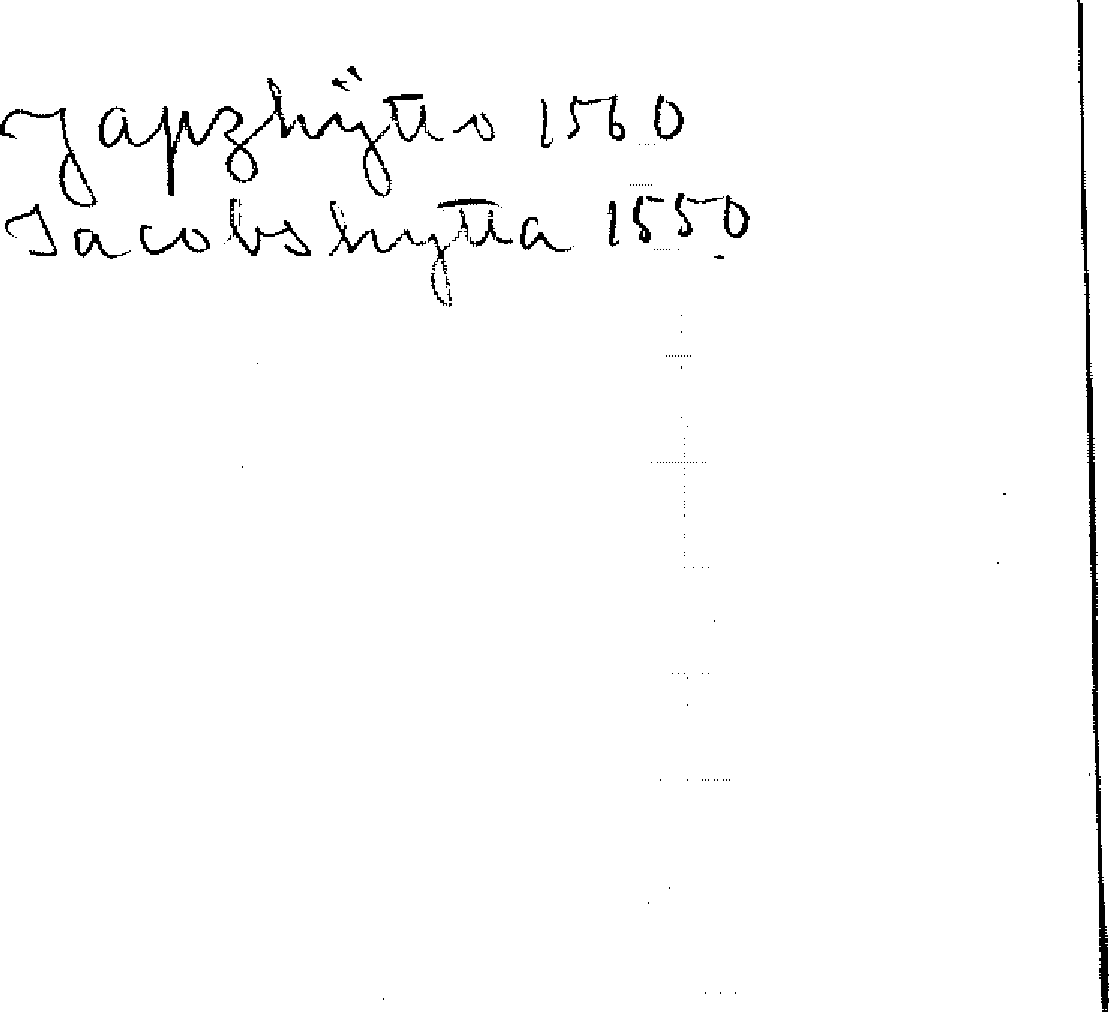 Japzhÿtto 1560
Jacobshytta 1550